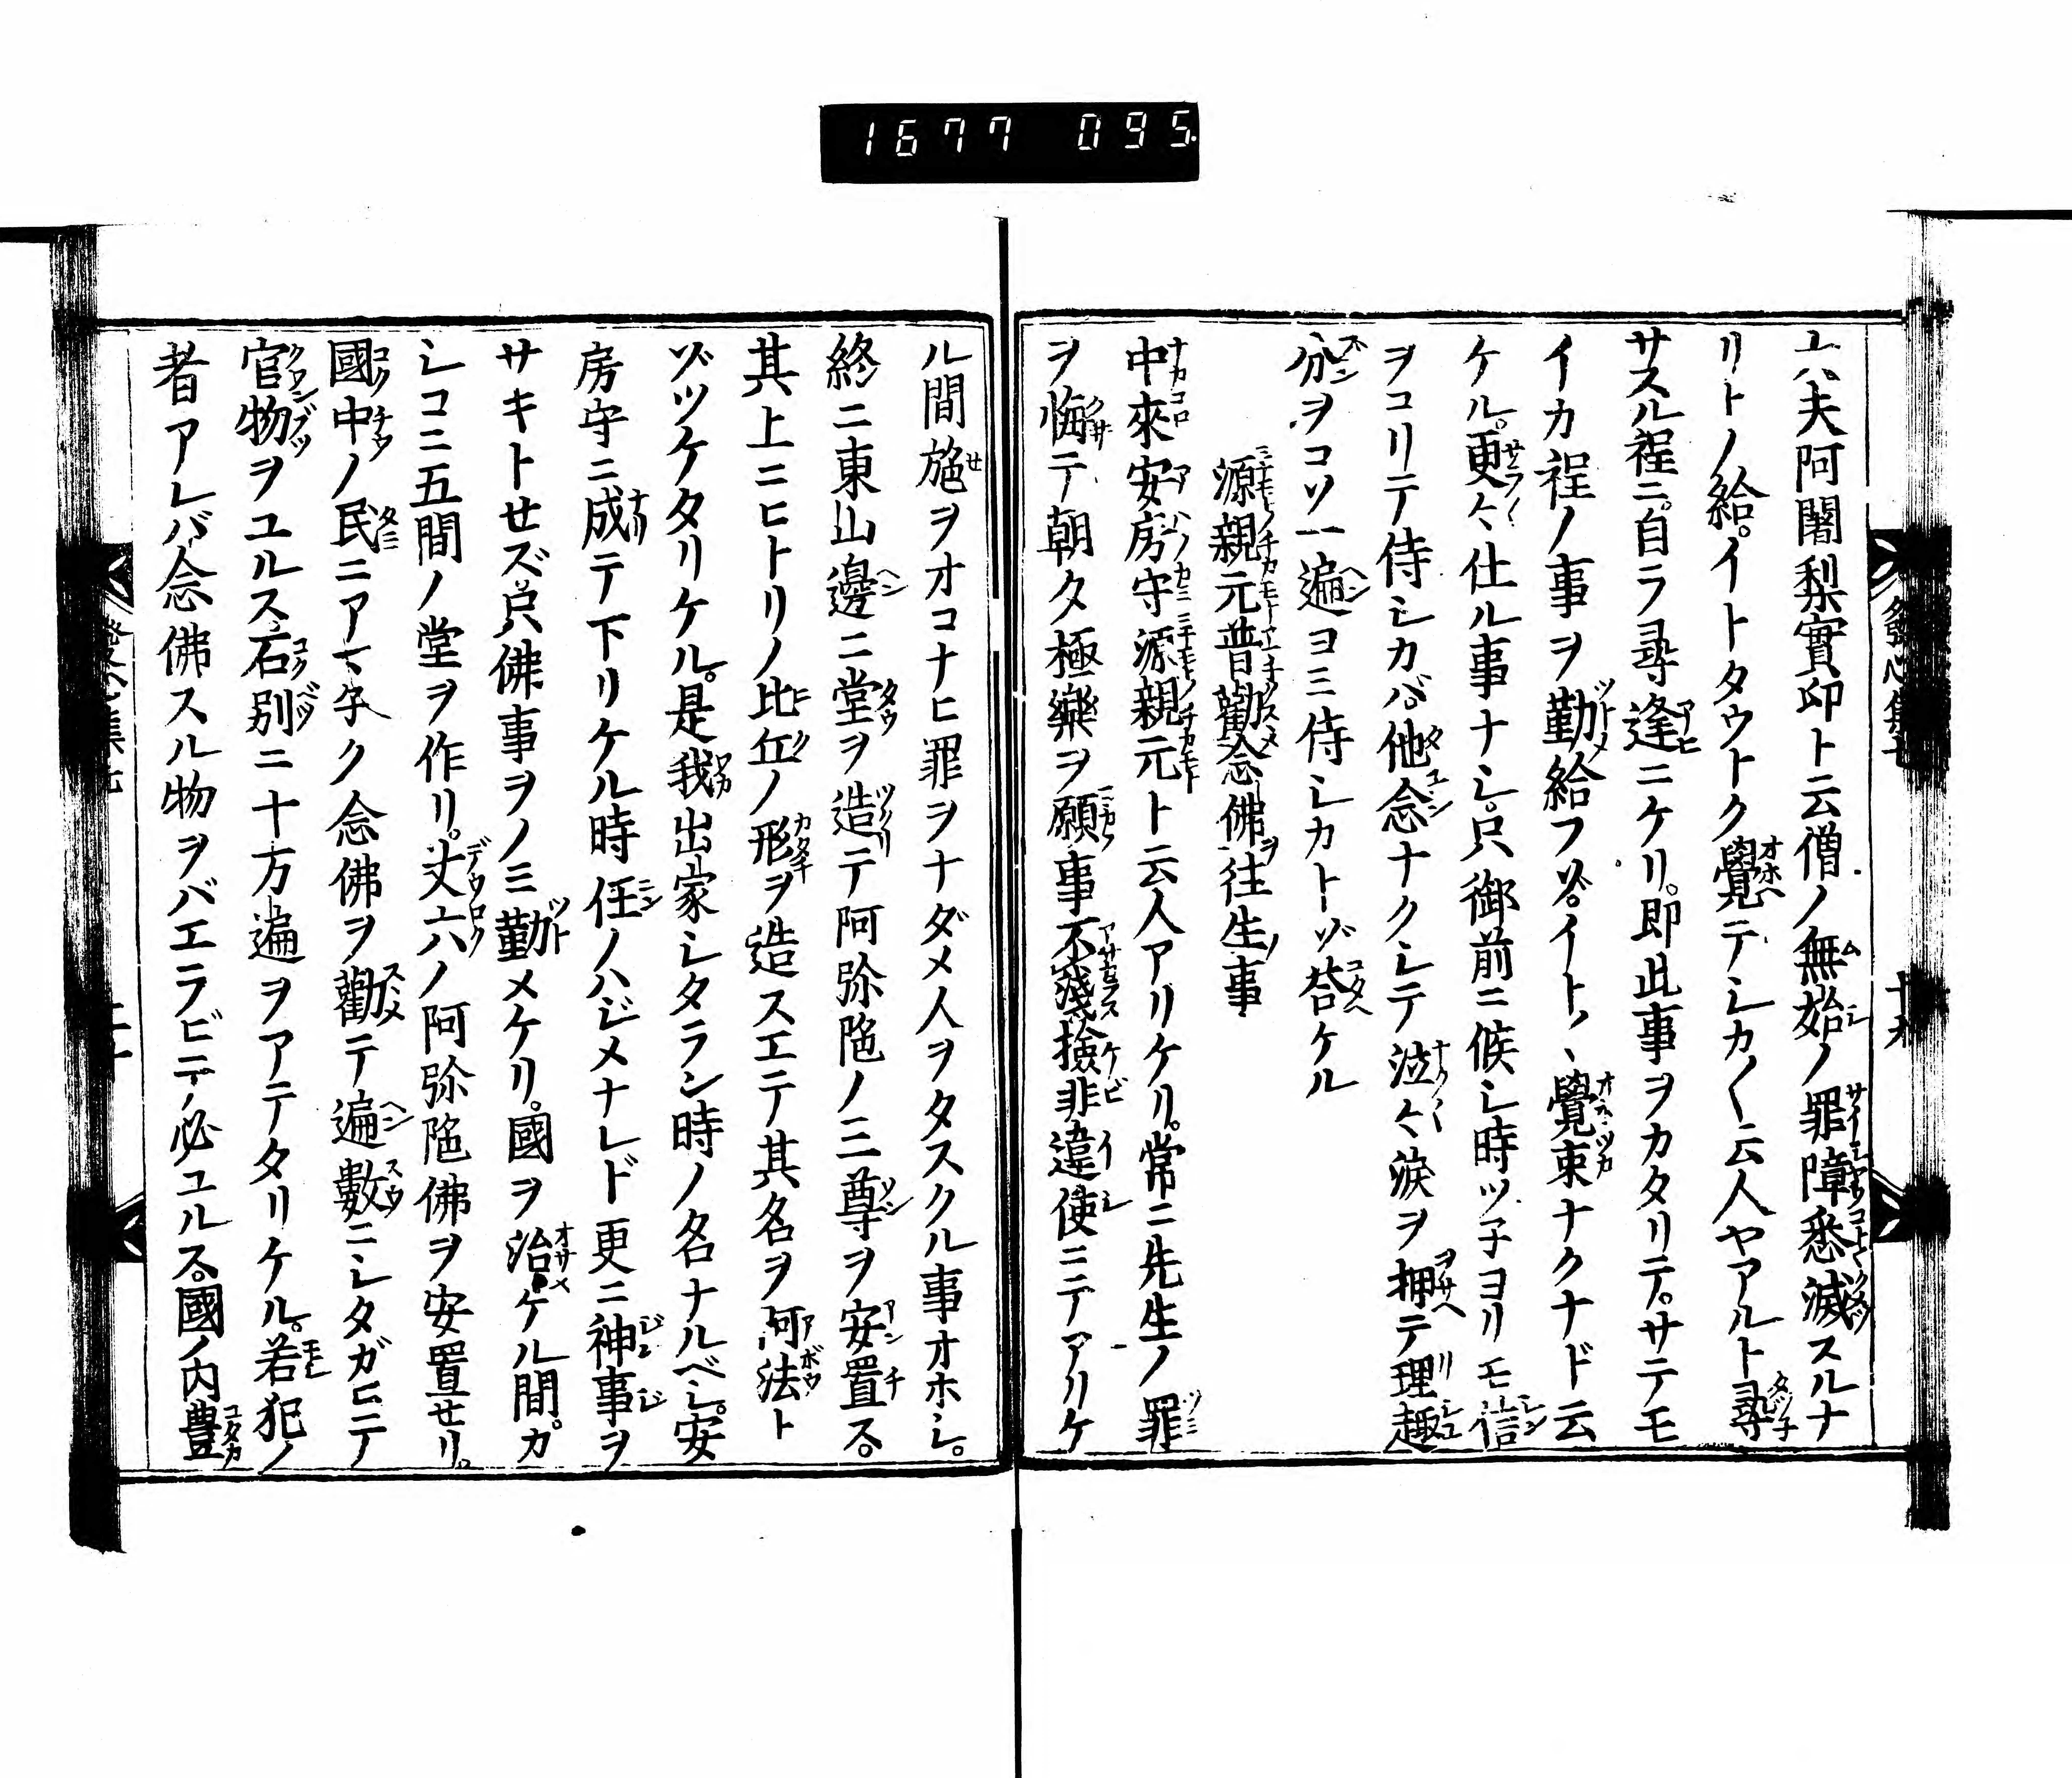 1677 095
發心集七 十九
ニハ大夫阿闍梨實印ト云僧ノ無始ノ罪障悉滅スルナ
リトノ給。イトタウトク覺テシカ〳〵云人ヤアルト尋
サスル程ニ。自ラ尋逢ニケリ。即此事ヲカタリテ。サテモ
イカ程ノ事ヲ勤給フゾ。イト、覺束ナクナド云
ケル。更々仕ル事ナシ。只御前ニ候シ時ツ子ヨリモ信
ヲコリテ侍シカバ。他念ナクシテ泣々涙ヲ押テ理趣
分ヲコソ一遍ヨミ侍シカトゾ荅ケル
源親元普勸念佛ヲ往生ノ事
中來安房守源親元ト云人アリケリ。常ニ先生ノ罪
ヲ悔テ朝夕極樂ヲ願事不淺撿非違使ニテアリケ
ル間施ヲオコナヒ罪ヲナダメ人ヲタスクル事オホシ。
終ニ東山邊ニ堂ヲ造テ阿弥陁ノ三尊ヲ安置ス。
其上ニヒトリノ比丘ノ形ヲ造スエテ其名ヲ阿法ト
ゾツケタリケル。是我出家シタラン時ノ名ナルベシ。安
房守ニ成テ下リケル時任ノハジメナレド更ニ神事ヲ
サキトせズ只佛事ヲノミ勤メケリ。國ヲ治ケル間。カ
シコニ五間ノ堂ヲ作リ。丈六ノ阿弥陁佛ヲ安置せリ。
國中ノ民ニアマ子ク念佛ヲ勸テ遍數ニシタガヒテ
官物ヲユルス。石別ニ十万遍ヲアテタリケル。若犯ノ
者アレバ念佛スル物ヲバエラビテ必ユルス。國ノ内豊
發心集七 二十